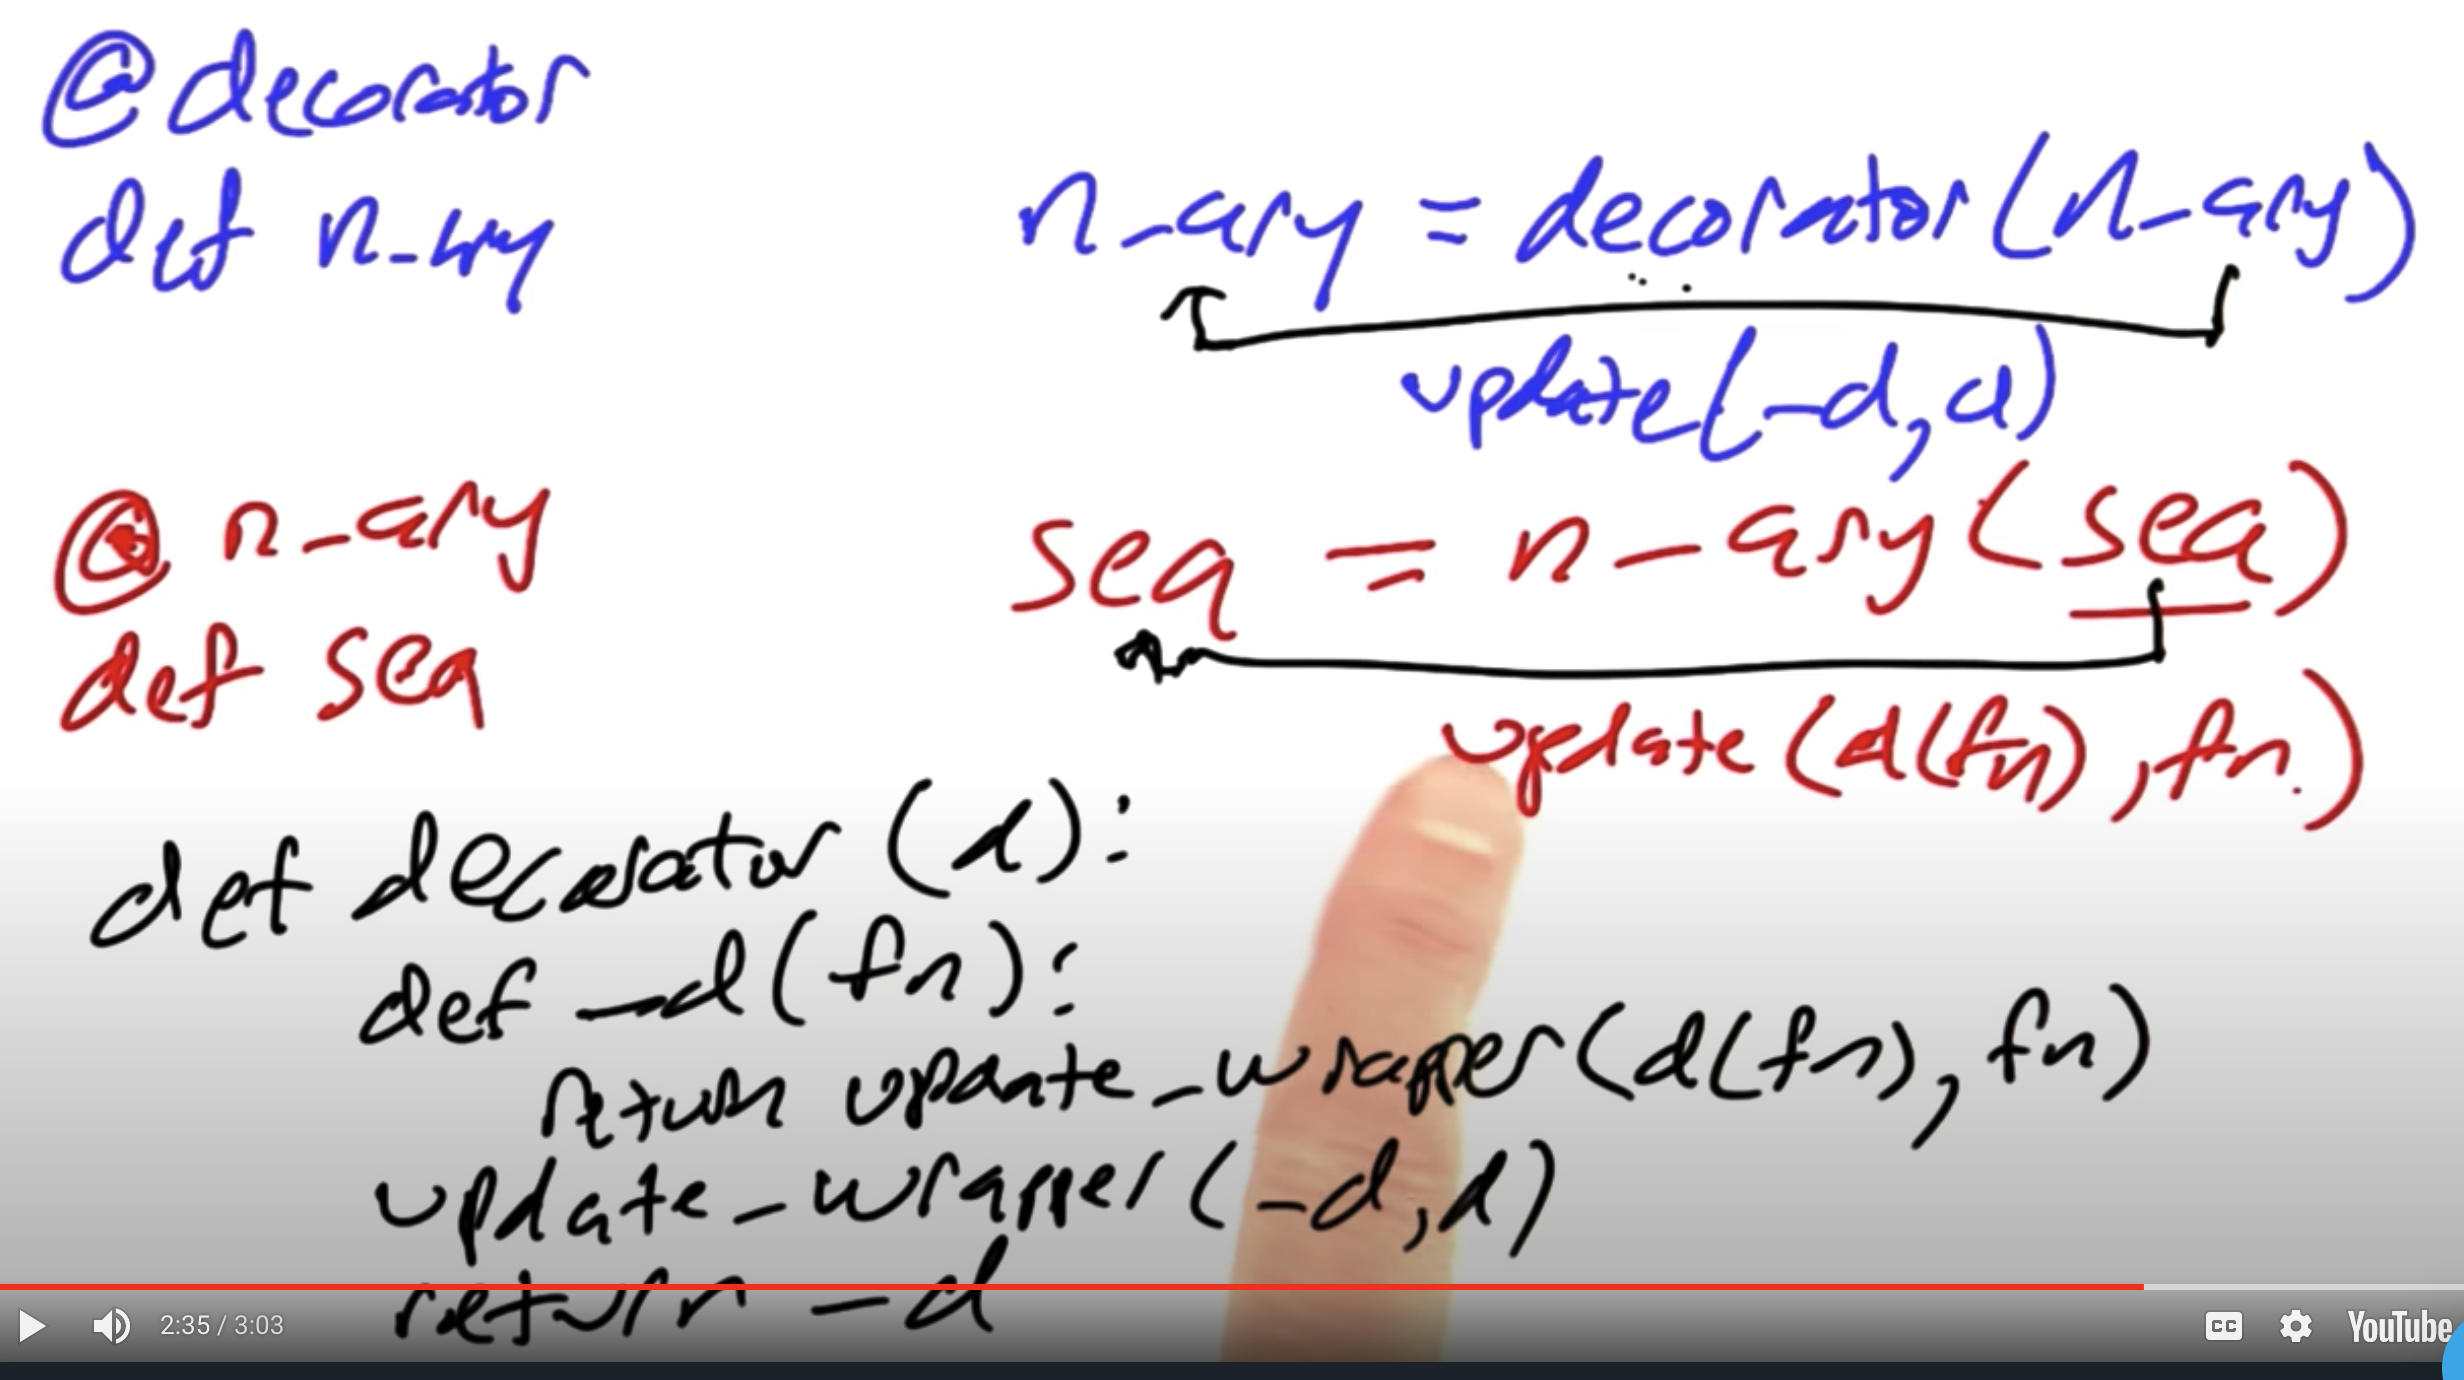 @decorator
def n_ary
n_ary = decorator(n_ary)
update(_d, d)
@n_ary
def seq
seq = n_ary(seq)
update(d(fn), fn.)
def decorator(d):
def _d(fn):
return update_wrapper(d(fn), fn)
update_wrapper(_d, d)
return _d
2:35 / 3:03
CC
YouTube